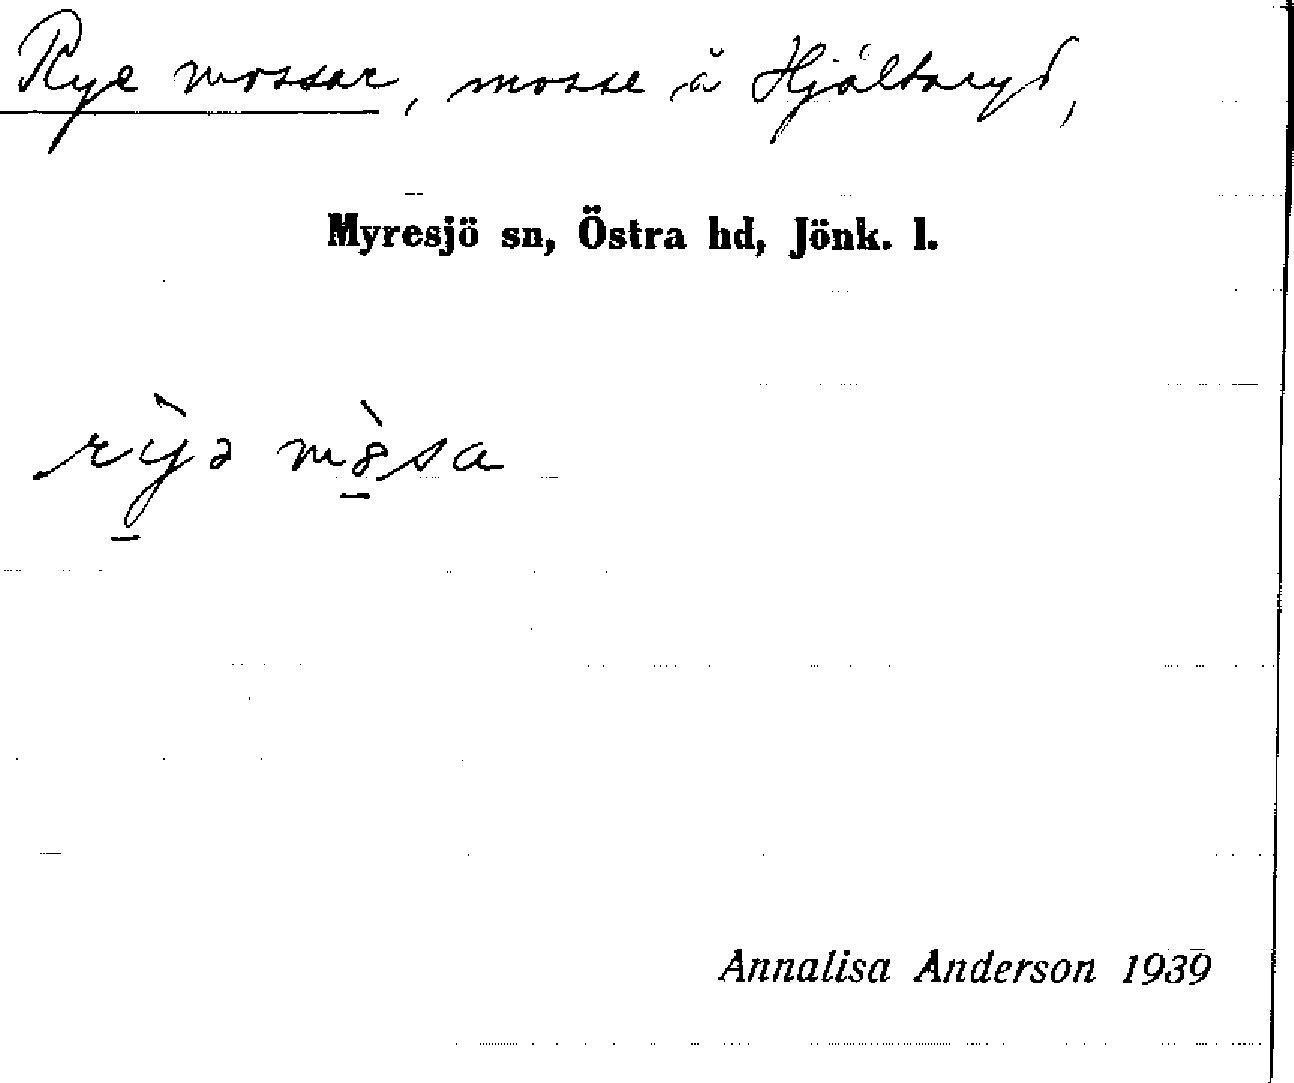 Rye mossar, mosse å Hjältaryd,
Myresjö sn, Östra hd, Jönk. l.
rỳə m&#x300;ȣsa
Annalisa Anderson 1939